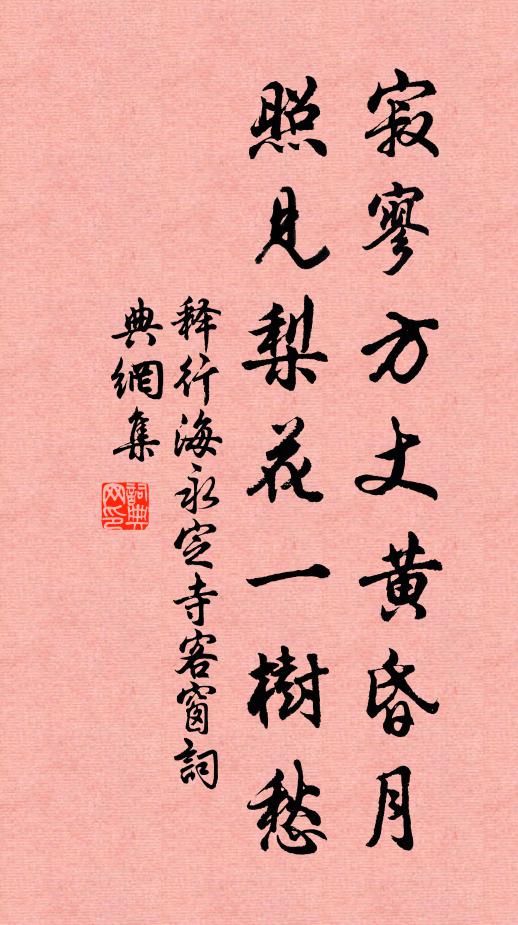 寂寥方丈黄昏月
照見梨花一樹愁
释行海永定寺客窗詞
典網集
詞典网印